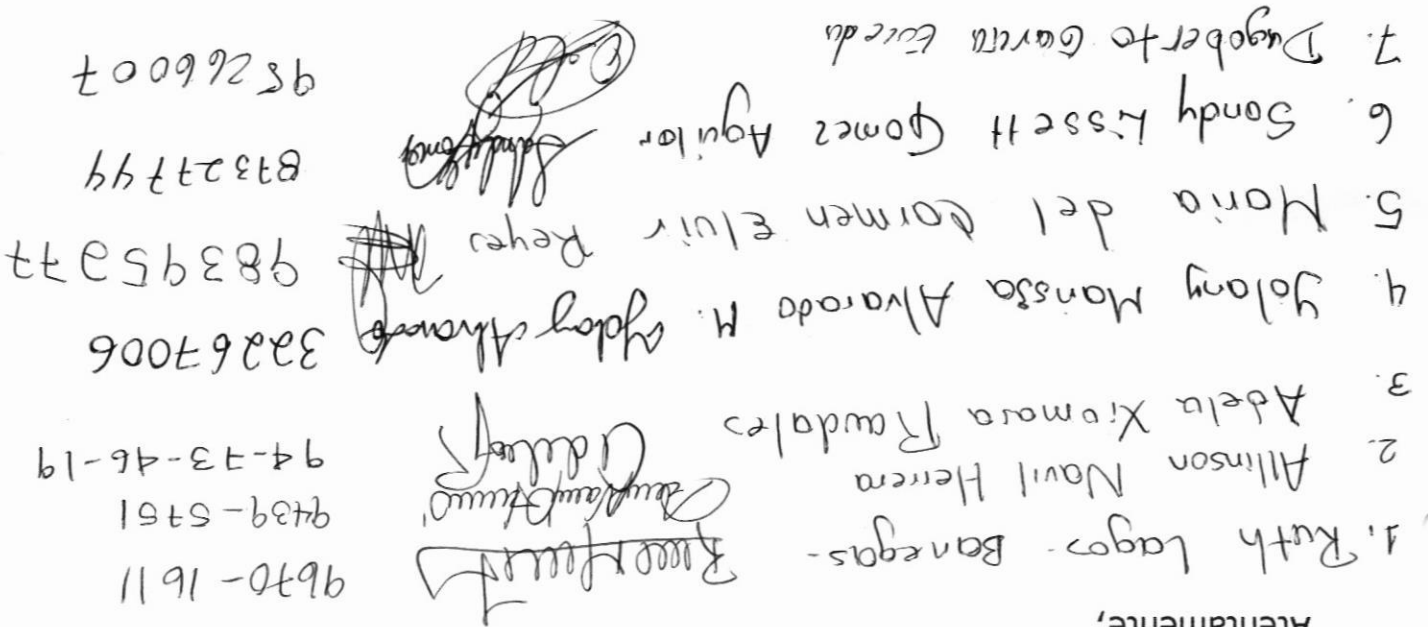 Atentamente,
1. Ruth Lagos Banegas - 9670-1611
2. Allinson Navil Herrera 9439-5751
3. Adela Xiomara Raudales 94-73-46-19
4. Yolany Marissa Alvarado M. Yolany Alvarado 32267006
5. Maria del Carmen Elvir Reyes 98395277
6. Sandy Lissett Gomez Aguilar SandyGomez 87327744
7. Dagoberto Garcia 95266007